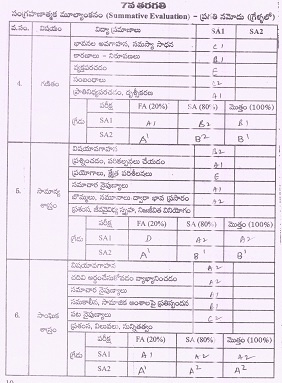 7వ తరగతి
సంగ్రహణాత్మక మూల్యాంకనం (Summative Evaluation) - ప్రగతి నమోదు (గ్రేళ్ళలో)
వ.సం. విషయం విద్యా ప్రమాణాలు SA1 SA2
భావనల అవగాహన, సమస్యా సాధన
కారణాలు - నిరూపణలు B1
వ్యక్తపరచడం E
4. గణితం సంబంధాలు C2
ప్రాతినిధ్యపరచడం, దృశ్యీకరణ A1
పరీక్ష FA (20%) SA (80%) మొత్తం (100%)
గ్రేడు SA1 A1 B1 B1
SA2 A1 B2 B1
విషయావగాహన B2
ప్రశ్నించడం, పరికల్పనలు చేయడం A1
ప్రయోగాలు, క్షేత్ర పరిశీలనలు E
5. సామాన్య శాస్త్రం సమాచార నైపుణ్యాలు A1
బొమ్మలు, నమూనాలు ద్వారా భావ ప్రసారం A2
ప్రశంస, జీవవైవిధ్య స్పృహ, నిజజీవిత వినియోగం A1
పరీక్ష FA (20%) SA (80%) మొత్తం (100%)
గ్రేడు SA1 D A2 A2
SA2 A1 B1 B1
విషయావగాహన A2
చదివి అర్థంచేసుకోవడం వ్యాఖ్యానించడం A2
సమాచార నైపుణ్యాలు A1
6. సాంఘిక శాస్త్రం సమకాలీన, సామాజిక అంశాలపై ప్రతిస్పందన A2
పట నైపుణ్యాలు B1
ప్రశంస, విలువలు, సున్నితత్వం C2
పరీక్ష FA (20%) SA (80%) మొత్తం (100%)
గ్రేడు SA1 A1 A2 A2
SA2 A1 A2 A2